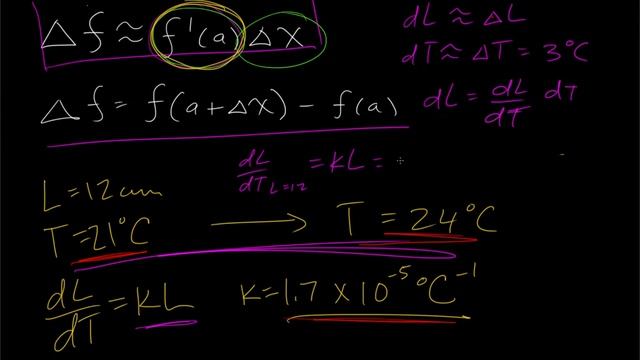 Δf ≈ f'(a) Δx
dL ≈ ΔL
dT ≈ ΔT = 3°C
Δf = f(a+Δx) - f(a)
dL = dL/dT dT
dL/dT L=12 = KL =
L = 12 cm
T = 21°C → T = 24°C
dL/dT = KL K = 1.7 × 10⁻⁵ °C⁻¹